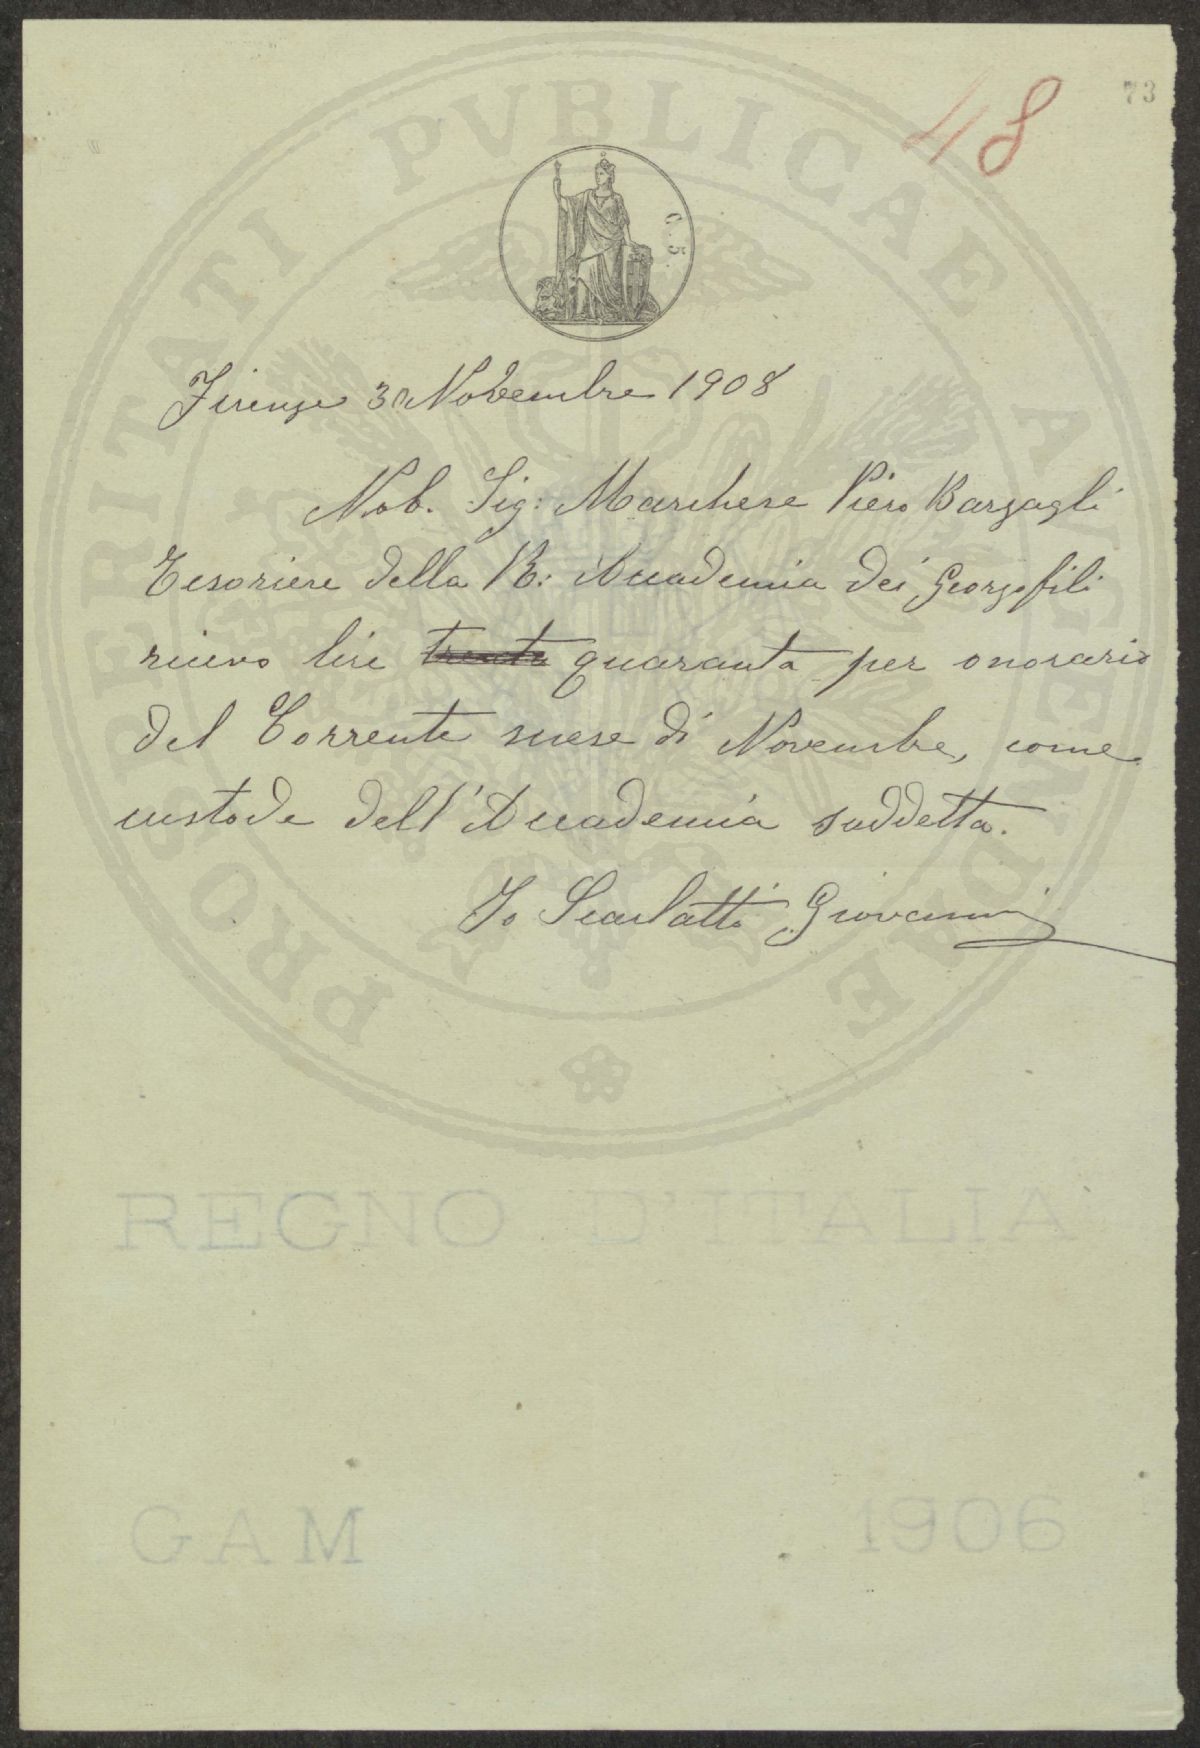 73
48
C. 5.
PROSPERITATI PVBLICAE AVGENDAE
Firenze 30 Novembre 1908
Nob. Sig: Marchese Piero Bargagli
Tesoriere della R: Accademia dei Georgofili
ricevo lire trenta quaranta per onorario
del Corrente mese di Novembre, come
custode dell'Accademia suddetta.
Io Scarlatti Giovanni
REGNO D'ITALIA
GAM 1906